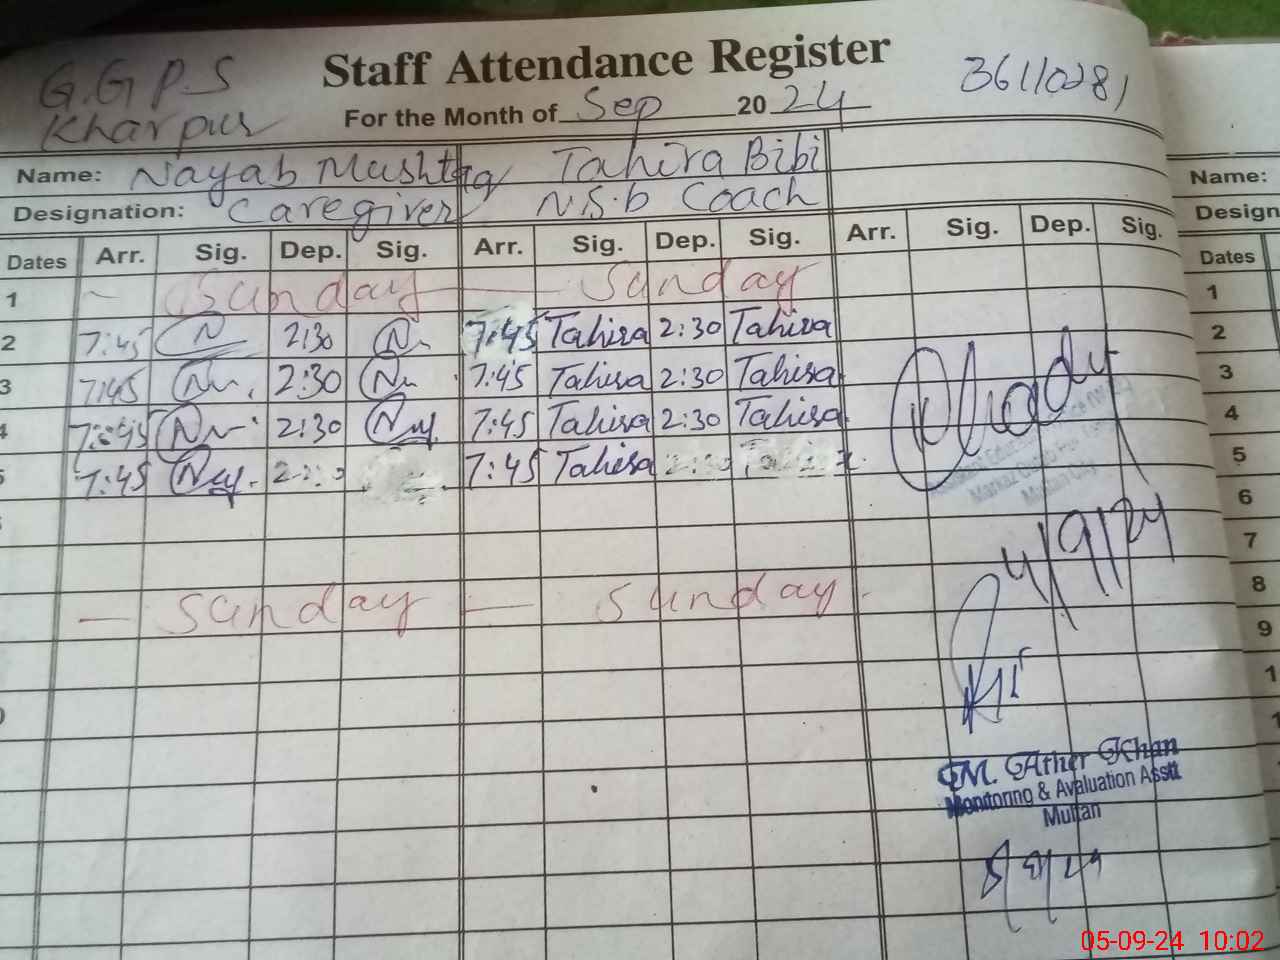 G.G P.S
Kharpur
Staff Attendance Register
36110281
For the Month of Sep 20 24
Name: Nayab Mushtaq Tahira Bibi
Designation: Caregiver N.S.b Coach
Dates Arr. Sig. Dep. Sig. Arr. Sig. Dep. Sig. Arr. Sig. Dep. Sig.
1 — Sunday — Sunday
2 7:45 N 2:30 N 7:45 Tahira 2:30 Tahira
3 7:45 2:30 7:45 Tahira 2:30 Tahira
4 7:45 2:30 7:45 Tahira 2:30 Tahira
5 7:45 7:45 Tahira
— Sunday — Sunday
4/9/24
M. Ather Khan
Monitoring & Avaluation Asstt
Multan
5/9/24
Name:
Design
Dates
1
2
3
4
5
6
7
8
9
1
05-09-24 10:02